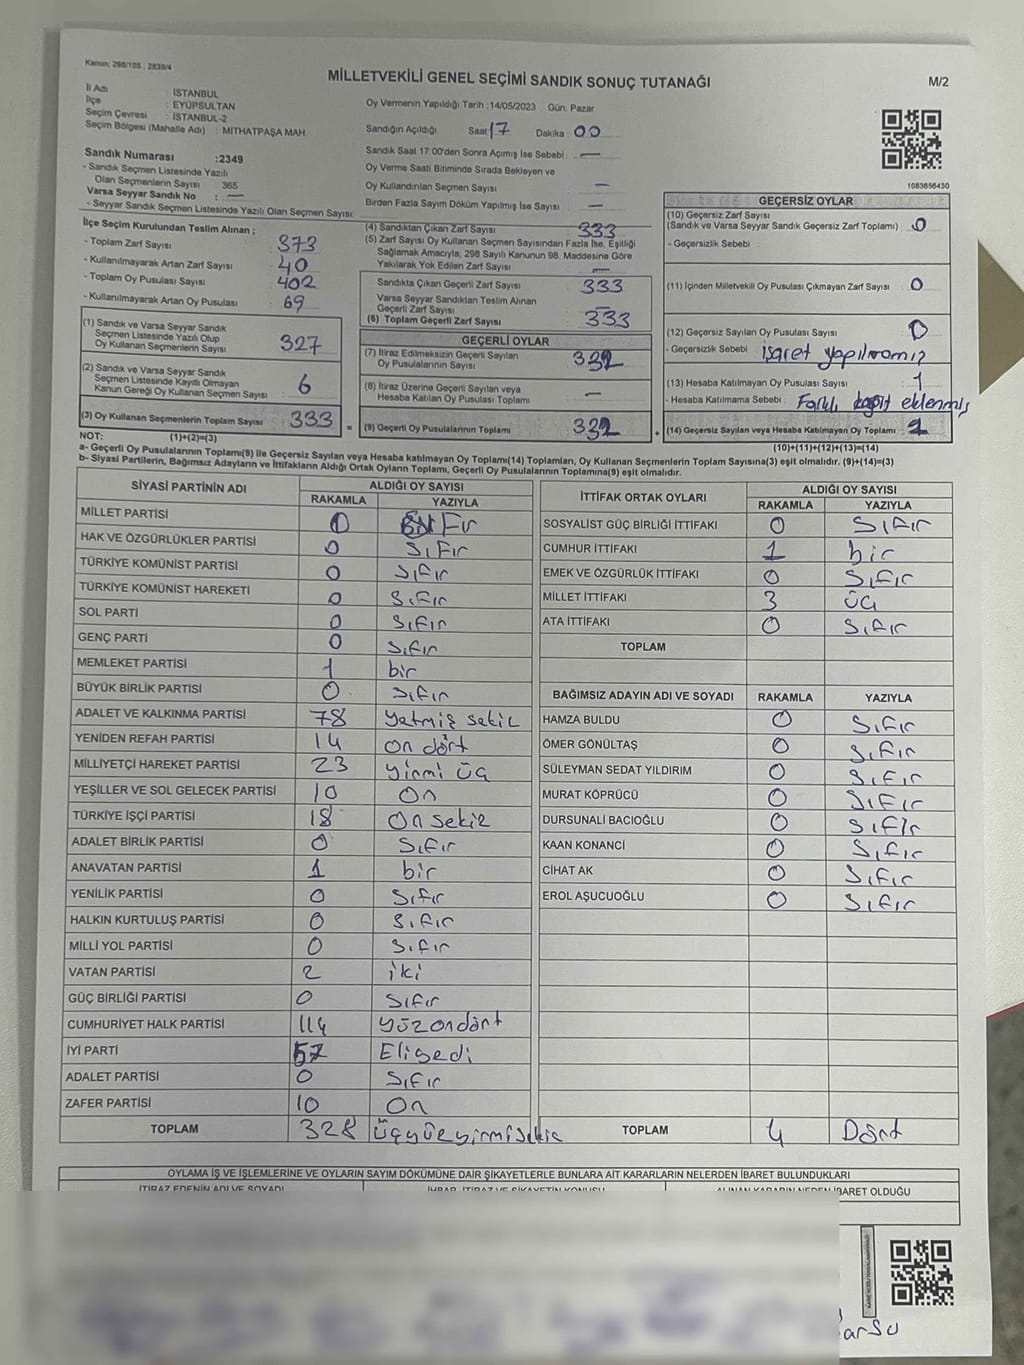 Kanun; 298/105 , 2839/4
MİLLETVEKİLİ GENEL SEÇİMİ SANDIK SONUÇ TUTANAĞI
M/2
İl Adı : İSTANBUL
İlçe : EYÜPSULTAN
Seçim Çevresi : İSTANBUL-2
Seçim Bölgesi (Mahalle Adı) : MİTHATPAŞA MAH.
Oy Vermenin Yapıldığı Tarih :14/05/2023 Gün: Pazar
Sandığın Açıldığı Saat: 17 Dakika : 00
Sandık Saat 17:00'den Sonra Açımış İse Sebebi : —
Oy Verme Saati Bitiminde Sırada Bekleyen ve
Oy Kullandırılan Seçmen Sayısı —
Birden Fazla Sayım Döküm Yapılmış İse Sayısı —
Sandık Numarası :2349
- Sandık Seçmen Listesinde Yazılı
Olan Seçmenlerin Sayısı : 365
Varsa Seyyar Sandık No : —
- Seyyar Sandık Seçmen Listesinde Yazılı Olan Seçmen Sayısı:
1083656430
İlçe Seçim Kurulundan Teslim Alınan ;
- Toplam Zarf Sayısı : 373
- Kullanılmayarak Artan Zarf Sayısı : 40
- Toplam Oy Pusulası Sayısı : 402
- Kullanılmayarak Artan Oy Pusulası : 69
(1) Sandık ve Varsa Seyyar Sandık
Seçmen Listesinde Yazılı Olup
Oy Kullanan Seçmenlerin Sayısı : 327
(2) Sandık ve Varsa Seyyar Sandık
Seçmen Listesinde Kayıtlı Olmayan
Kanun Gereği Oy Kullanan Seçmen Sayısı : 6
(3) Oy Kullanan Seçmenlerin Toplam Sayısı : 333 =
(4) Sandıktan Çıkan Zarf Sayısı : 333
(5) Zarf Sayısı Oy Kullanan Seçmen Sayısından Fazla İse, Eşitliği
Sağlamak Amacıyla, 298 Sayılı Kanunun 98. Maddesine Göre
Yakılarak Yok Edilen Zarf Sayısı : —
Sandıkta Çıkan Geçerli Zarf Sayısı : 333
Varsa Seyyar Sandıktan Teslim Alınan
Geçerli Zarf Sayısı : —
(6) Toplam Geçerli Zarf Sayısı : 333
GEÇERLİ OYLAR
(7) İtiraz Edilmeksizin Geçerli Sayılan
Oy Pusulalarının Sayısı : 332
(8) İtiraz Üzerine Geçerli Sayılan veya
Hesaba Katılan Oy Pusulası Toplamı : —
(9) Geçerli Oy Pusulalarının Toplamı : 332
GEÇERSİZ OYLAR
(10) Geçersiz Zarf Sayısı
(Sandık ve Varsa Seyyar Sandık Geçersiz Zarf Toplamı) : 0
- Geçersizlik Sebebi :
(11) İçinden Milletvekili Oy Pusulası Çıkmayan Zarf Sayısı : 0
(12) Geçersiz Sayılan Oy Pusulası Sayısı : 0
- Geçersizlik Sebebi : işaret yapılmamış
(13) Hesaba Katılmayan Oy Pusulası Sayısı : 1
- Hesaba Katılmama Sebebi : Farklı kağıt eklenmiş
(14) Geçersiz Sayılan veya Hesaba Katılmayan Oy Toplamı : 1
(10)+(11)+(12)+(13)=(14)
NOT: (1)+(2)=(3)
a- Geçerli Oy Pusulalarının Toplamı(9) ile Geçersiz Sayılan veya Hesaba katılmayan Oy Toplamı(14) Toplamları, Oy Kullanan Seçmenlerin Toplam Sayısına(3) eşit olmalıdır. (9)+(14)=(3)
b- Siyasi Partilerin, Bağımsız Adayların ve İttifakların Aldığı Ortak Oyların Toplamı, Geçerli Oy Pusulalarının Toplamına(9) eşit olmalıdır.
SİYASİ PARTİNİN ADI ALDIĞI OY SAYISI
RAKAMLA YAZIYLA
MİLLET PARTİSİ 0
HAK VE ÖZGÜRLÜKLER PARTİSİ 0 Sıfır
TÜRKİYE KOMÜNİST PARTİSİ 0 Sıfır
TÜRKİYE KOMÜNİST HAREKETİ 0 Sıfır
SOL PARTİ 0 Sıfır
GENÇ PARTİ 0 Sıfır
MEMLEKET PARTİSİ 1 bir
BÜYÜK BİRLİK PARTİSİ 0 Sıfır
ADALET VE KALKINMA PARTİSİ 78 Yetmiş sekiz
YENİDEN REFAH PARTİSİ 14 On dört
MİLLİYETÇİ HAREKET PARTİSİ 23 Yirmi üç
YEŞİLLER VE SOL GELECEK PARTİSİ 10 On
TÜRKİYE İŞÇİ PARTİSİ 18 On sekiz
ADALET BİRLİK PARTİSİ 0 Sıfır
ANAVATAN PARTİSİ 1 bir
YENİLİK PARTİSİ 0 Sıfır
HALKIN KURTULUŞ PARTİSİ 0 Sıfır
MİLLİ YOL PARTİSİ 0 Sıfır
VATAN PARTİSİ 2 iki
GÜÇ BİRLİĞİ PARTİSİ 0 Sıfır
CUMHURİYET HALK PARTİSİ 114 Yüzondört
İYİ PARTİ 57 Eliyedi
ADALET PARTİSİ 0 Sıfır
ZAFER PARTİSİ 10 On
TOPLAM 328 Üçyüzyirmisekiz
İTTİFAK ORTAK OYLARI ALDIĞI OY SAYISI
RAKAMLA YAZIYLA
SOSYALİST GÜÇ BİRLİĞİ İTTİFAKI 0 Sıfır
CUMHUR İTTİFAKI 1 bir
EMEK VE ÖZGÜRLÜK İTTİFAKI 0 Sıfır
MİLLET İTTİFAKI 3 üç
ATA İTTİFAKI 0 Sıfır
TOPLAM
BAĞIMSIZ ADAYIN ADI VE SOYADI RAKAMLA YAZIYLA
HAMZA BULDU 0 Sıfır
ÖMER GÖNÜLTAŞ 0 Sıfır
SÜLEYMAN SEDAT YILDIRIM 0 Sıfır
MURAT KÖPRÜCÜ 0 Sıfır
DURSUNALİ BACIOĞLU 0 Sıfır
KAAN KONANCİ 0 Sıfır
CİHAT AK 0 Sıfır
EROL AŞUCUOĞLU 0 Sıfır
TOPLAM 4 Dört
OYLAMA İŞ VE İŞLEMLERİNE VE OYLARIN SAYIM DÖKÜMÜNE DAİR ŞİKAYETLERLE BUNLARA AİT KARARLARIN NELERDEN İBARET BULUNDUKLARI
İTİRAZ EDENİN ADI VE SOYADI İHBAR, İTİRAZ VE ŞİKAYETİN KONUSU ALINAN KARARIN NEDEN İBARET OLDUĞU